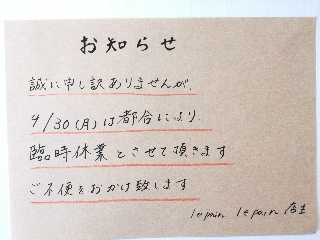 お知らせ
誠に申し訳ありませんが、
4/30(月)は都合により、
臨時休業とさせて頂きます
ご不便をおかけ致します
lepain lepain 店主